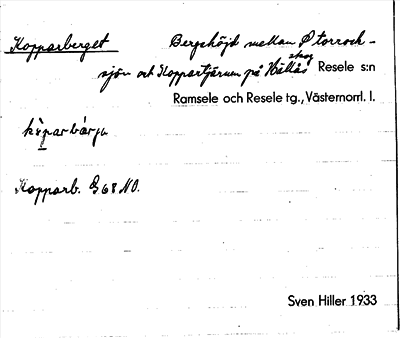 Kopparberget Bergshöjd mellan Storrock-
sjön och Koppartjärnen på Hällåsskog Resele s:n
Ramsele och Resele tg., Västernorrl. l.
Kopparb. G68 NO.
Sven Hiller 1933